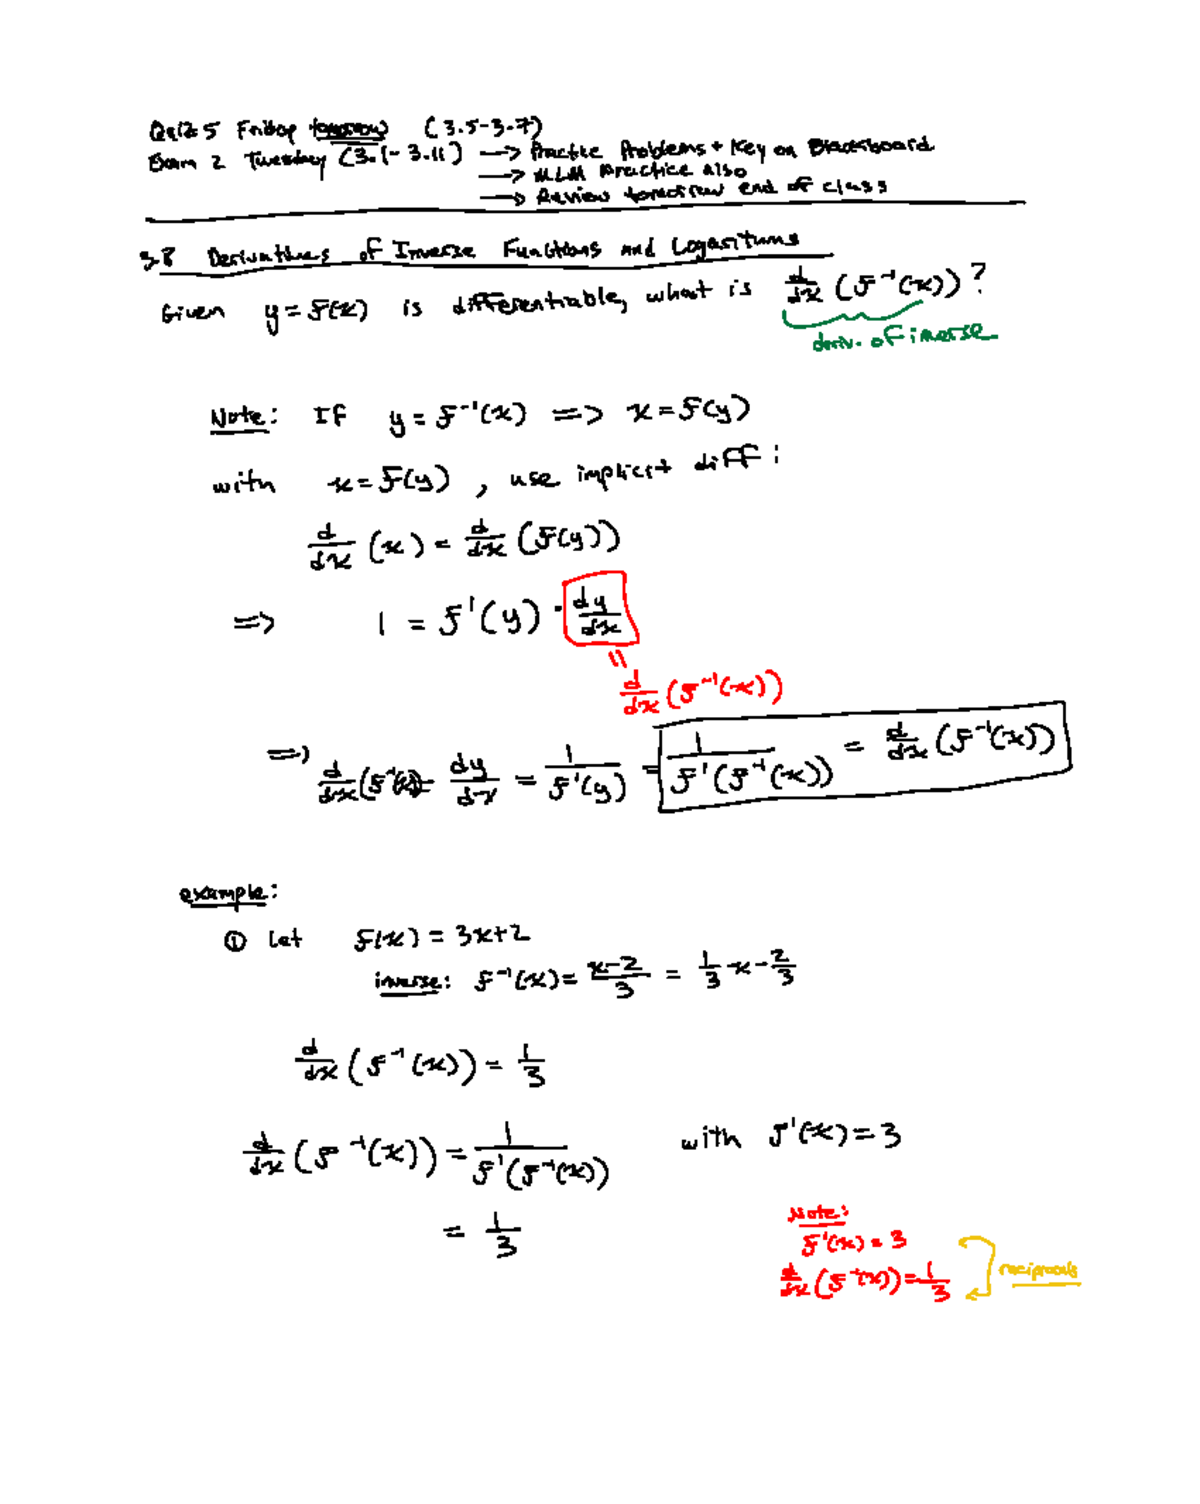 Quiz 5 Friday tomorrow (3.5-3.7)
Exam 2 Tuesday (3.1-3.11) → Practice Problems + Key on Blackboard
→ MLM practice also
→ Review tomorrow end of class
3.8 Derivatives of Inverse Functions and Logarithms
Given y = f(x) is differentiable, what is d/dx (f⁻¹(x))?
deriv. of inverse
Note: If y = f⁻¹(x) => x = f(y)
with x = f(y), use implicit diff:
d/dx (x) = d/dx (f(y))
=> 1 = f'(y) · dy/dx
"
d/dx (f⁻¹(x))
=> d/dx (f⁻¹(x)) = dy/dx = 1/f'(y) = 1/f'(f⁻¹(x)) = d/dx (f⁻¹(x))
example:
① Let f(x) = 3x+2
inverse: f⁻¹(x) = x-2/3 = 1/3 x - 2/3
d/dx (f⁻¹(x)) = 1/3
d/dx (f⁻¹(x)) = 1/f'(f⁻¹(x)) with f'(x) = 3
= 1/3
Note:
f'(x) = 3
d/dx (f⁻¹(x)) = 1/3
reciprocals